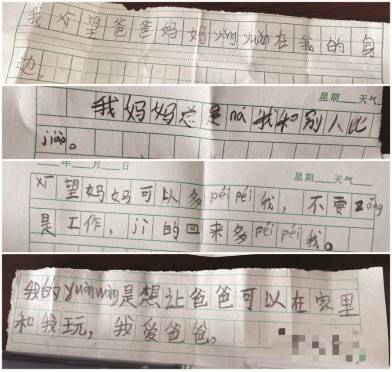 我希望爸爸妈妈yǒng yuǎn在我的身
边。
星期 天气
我妈妈总是ná我和别人比
jiào。
年 月 日 星期 天气
希望妈妈可以多péi péi我，不要zǒng
是工作，jì的回来多péi péi我。
我的yuàn wàng是想让爸爸可以在家里
和我玩，我爱爸爸。